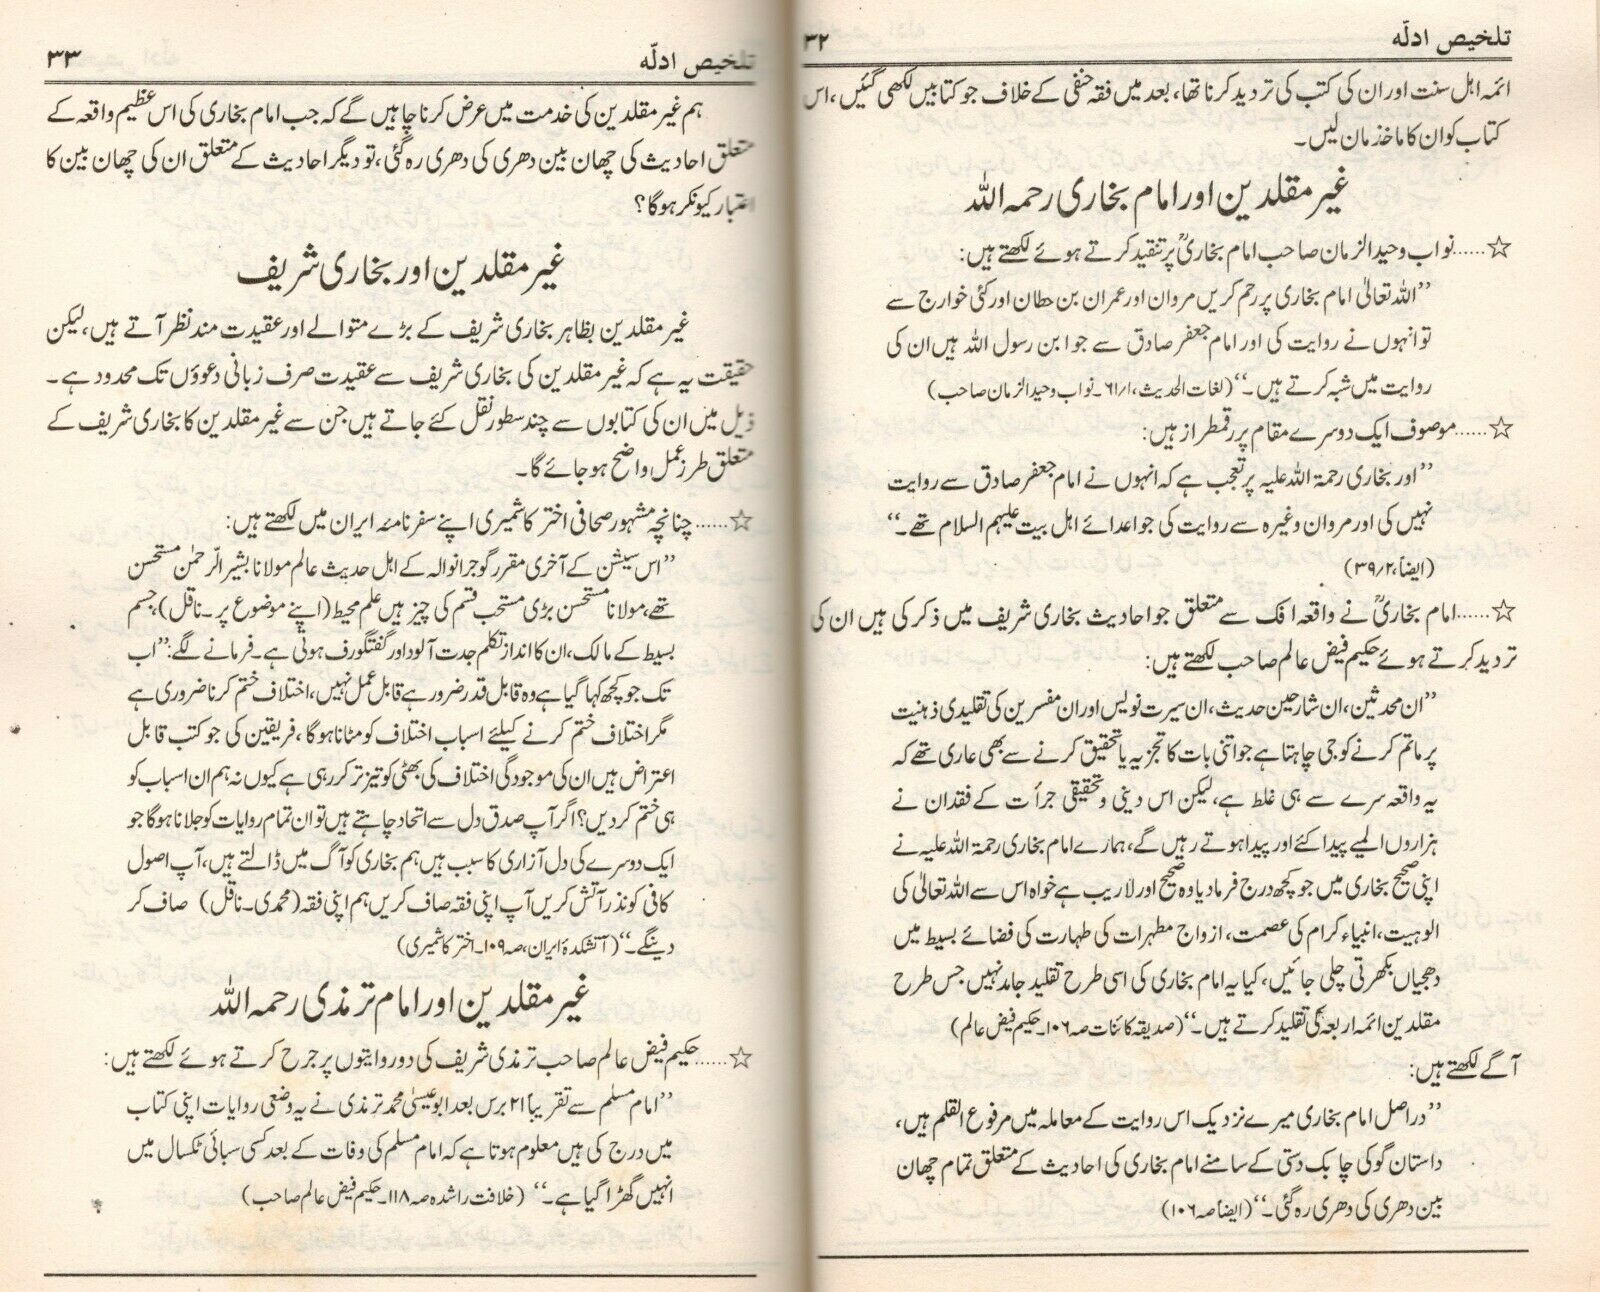 تلخیص ادلّہ
۳۲
ائمہ اہل سنت اور ان کی کتب کی تردید کرنا تھا، بعد میں فقہ حنفی کے خلاف جو کتابیں لکھی گئیں، اس
کتاب کو ان کا ماخذ مان لیں۔
غیر مقلدین اور امام بخاری رحمہ اللہ
☆......نواب وحید الزمان صاحب امام بخاریؒ پر تنقید کرتے ہوئے لکھتے ہیں:
”اللہ تعالیٰ امام بخاری پر رحم کریں مروان اور عمران بن حطان اور کئی خوارج سے
تو انہوں نے روایت کی اور امام جعفر صادق سے جو ابن رسول اللہ ہیں ان کی
روایت میں شبہ کرتے ہیں۔“ (لغات الحدیث، ۱/۶۱۔ نواب وحید الزمان صاحب)
☆......موصوف ایک دوسرے مقام پر رقمطراز ہیں:
”اور بخاری رحمۃ اللہ علیہ پر تعجب ہے کہ انہوں نے امام جعفر صادق سے روایت
نہیں کی اور مروان وغیرہ سے روایت کی جو اعدائے اہل بیت علیہم السلام تھے۔“
(ایضاً، ۳۹/۲)
☆......امام بخاریؒ نے واقعہ افک سے متعلق جو احادیث بخاری شریف میں ذکر کی ہیں ان کی
تردید کرتے ہوئے حکیم فیض عالم صاحب لکھتے ہیں:
”ان محدثین، ان شارحین حدیث، ان سیرت نویس اور ان مفسرین کی تقلیدی ذہنیت
پر ماتم کرنے کو جی چاہتا ہے جو اتنی بات کا تجزیہ یا تحقیق کرنے سے بھی عاری تھے کہ
یہ واقعہ سرے سے ہی غلط ہے، لیکن اس دینی و تحقیقی جرأت کے فقدان نے
ہزاروں المیے پیدا کئے اور پیدا ہوتے رہیں گے، ہمارے امام بخاری رحمۃ اللہ علیہ نے
اپنی صحیح بخاری میں جو کچھ درج فرما دیا وہ صحیح اور لا ریب ہے خواہ اس سے اللہ تعالیٰ کی
الوہیت، انبیاء کرام کی عصمت، ازواج مطہرات کی طہارت کی فضائے بسیط میں
دھجیاں بکھرتی چلی جائیں، کیا یہ امام بخاری کی اسی طرح تقلید جامد نہیں جس طرح
مقلدین ائمہ اربعہ کی تقلید کرتے ہیں۔“ (صدیقہ کائنات صہ ۱۰۶۔ حکیم فیض عالم)
آگے لکھتے ہیں:
”دراصل امام بخاری میرے نزدیک اس روایت کے معاملہ میں مرفوع القلم ہیں،
داستان گو کی چابک دستی کے سامنے امام بخاری کی احادیث کے متعلق تمام چھان
بین دھری کی دھری رہ گئی۔“ (ایضاً صہ ۱۰۶)
تلخیص ادلّہ
۳۳
ہم غیر مقلدین کی خدمت میں عرض کرنا چاہیں گے کہ جب امام بخاری کی اس عظیم واقعہ کے
متعلق احادیث کی چھان بین دھری کی دھری رہ گئی، تو دیگر احادیث کے متعلق ان کی چھان بین کا
اعتبار کیونکر ہوگا؟
غیر مقلدین اور بخاری شریف
غیر مقلدین بظاہر بخاری شریف کے بڑے متوالے اور عقیدت مند نظر آتے ہیں، لیکن
حقیقت یہ ہے کہ غیر مقلدین کی بخاری شریف سے عقیدت صرف زبانی دعوؤں تک محدود ہے۔
ذیل میں ان کی کتابوں سے چند سطور نقل کئے جاتے ہیں جن سے غیر مقلدین کا بخاری شریف کے
متعلق طرز عمل واضح ہو جائے گا۔
☆......چنانچہ مشہور صحافی اختر کاشمیری اپنے سفر نامۂ ایران میں لکھتے ہیں:
”اس سیشن کے آخری مقرر گوجرانوالہ کے اہل حدیث عالم مولانا بشیر الرّحمٰن مستحسن
تھے، مولانا مستحسن بڑی مستحب قسم کی چیز ہیں علم محیط (اپنے موضوع پر۔ناقل)، جسم
بسیط کے مالک، ان کا انداز تکلم جدت آلود اور گفتگو رف ہوتی ہے۔ فرمانے لگے: ”اب
تک جو کچھ کہا گیا ہے وہ قابل قدر ضرور ہے قابل عمل نہیں، اختلاف ختم کرنا ضروری ہے
مگر اختلاف ختم کرنے کیلئے اسباب اختلاف کو مٹانا ہوگا، فریقین کی جو کتب قابل
اعتراض ہیں ان کی موجودگی اختلاف کی بھٹی کو تیز تر کر رہی ہے کیوں نہ ہم ان اسباب کو
ہی ختم کر دیں؟ اگر آپ صدق دل سے اتحاد چاہتے ہیں تو ان تمام روایات کو جلانا ہوگا جو
ایک دوسرے کی دل آزاری کا سبب ہیں ہم بخاری کو آگ میں ڈالتے ہیں، آپ اصول
کافی کو نذر آتش کریں آپ اپنی فقہ صاف کریں ہم اپنی فقہ (محمدی۔ناقل) صاف کر
دینگے۔“ (آتشکدۂ ایران، صہ ۱۰۹۔ اختر کاشمیری)
غیر مقلدین اور امام ترمذی رحمہ اللہ
☆......حکیم فیض عالم صاحب ترمذی شریف کی دو روایتوں پر جرح کرتے ہوئے لکھتے ہیں:
”امام مسلم سے تقریباً ۲۱ برس بعد ابو عیسیٰ محمد ترمذی نے یہ وضعی روایات اپنی کتاب
میں درج کی ہیں معلوم ہوتا ہے کہ امام مسلم کی وفات کے بعد کسی سبائی ٹکسال میں
انہیں گھڑا گیا ہے۔“ (خلافت راشدہ صہ ۱۱۸۔ حکیم فیض عالم صاحب)